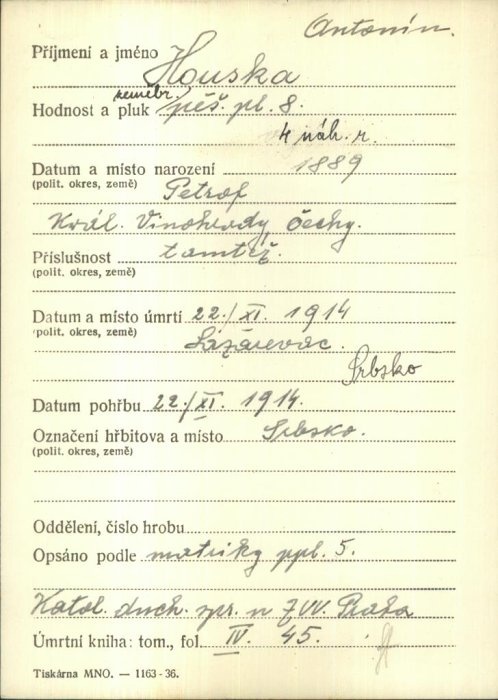 Antonín.
Příjmení a jméno Houska
zeměbr.
Hodnost a pluk pěš. pl. 8.
4 náh. r.
Datum a místo narození 1889
(polit. okres, země) Petrof
Král. Vinohrady, Čechy.
Příslušnost tamtéž.
(polit. okres, země)
Datum a místo úmrtí 22./XI. 1914
(polit. okres, země) Lazarevac.
Srbsko
Datum pohřbu 22./XI. 1914.
Označení hřbitova a místo Srbsko.
(polit. okres, země)
Oddělení, číslo hrobu
Opsáno podle matriky ppl. 5.
Katol. duch. spr. u ZVV. Praha
Úmrtní kniha: tom., fol. IV. 45.
Tiskárna MNO. — 1163-36.